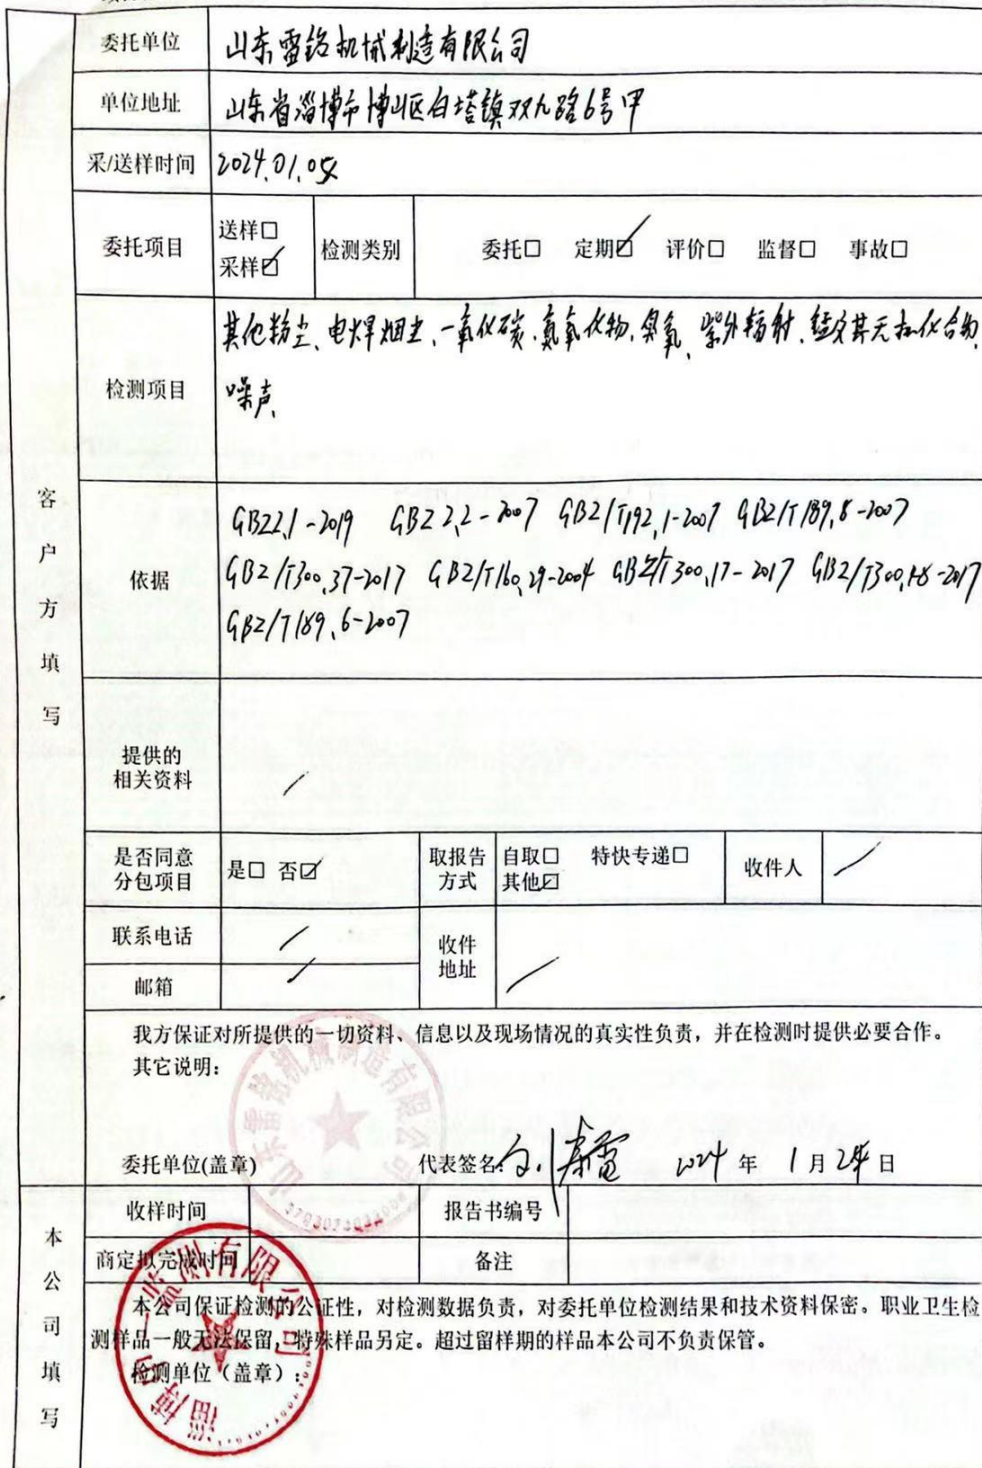 委托单位 山东雷铭机械制造有限公司
单位地址 山东省淄博市博山区白塔镇双九路6号甲
采/送样时间 2024.01.05
委托项目 送样☐ 采样☑ 检测类别 委托☐ 定期☑ 评价☐ 监督☐ 事故☐
检测项目 其他粉尘、电焊烟尘、一氧化碳、氮氧化物、臭氧、紫外辐射、锰及其无机化合物、
噪声、
客户方填写
依据
GBZ2.1-2019 GBZ2.2-2007 GBZ/T192.1-2007 GBZ/T189.8-2007
GBZ/T300.37-2017 GBZ/T160.29-2004 GBZ/T300.17-2017 GBZ/T300.48-2017
GBZ/T189.6-2007
提供的
相关资料 /
是否同意
分包项目 是☐ 否☑ 取报告
方式 自取☐ 特快专递☐
其他☑ 收件人 /
联系电话 / 收件
地址 /
邮箱 /
我方保证对所提供的一切资料、信息以及现场情况的真实性负责，并在检测时提供必要合作。
其它说明：
山东雷铭机械制造有限公司
委托单位(盖章) 代表签名： 2024 年 1 月 日
本公司填写
收样时间 报告书编号
商定拟完成时间 备注
本公司保证检测的公证性，对检测数据负责，对委托单位检测结果和技术资料保密。职业卫生检
测样品一般无法保留，特殊样品另定。超过留样期的样品本公司不负责保管。
检测单位（盖章）：
淄博 一监测有限公司